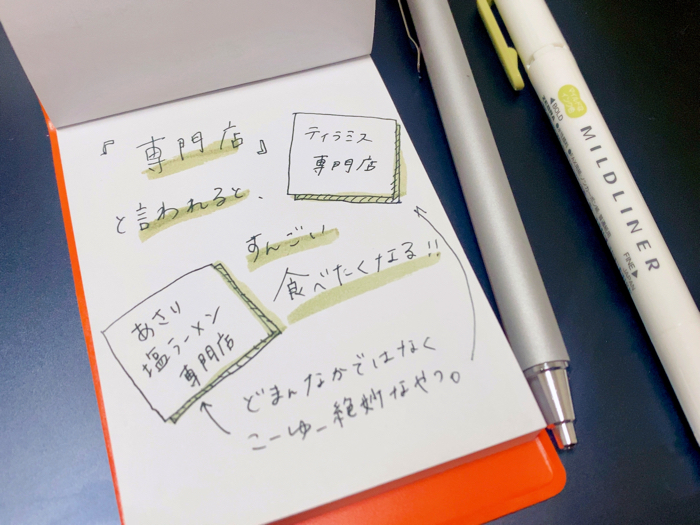 『専門店』
ティラミス
専門店
と言われると、
すんごい
食べたくなる!!
あさり
塩ラーメン
専門店
どまんなかではなく
こーゆー絶妙なやつ。
MILDLINER
BOLD
FINE